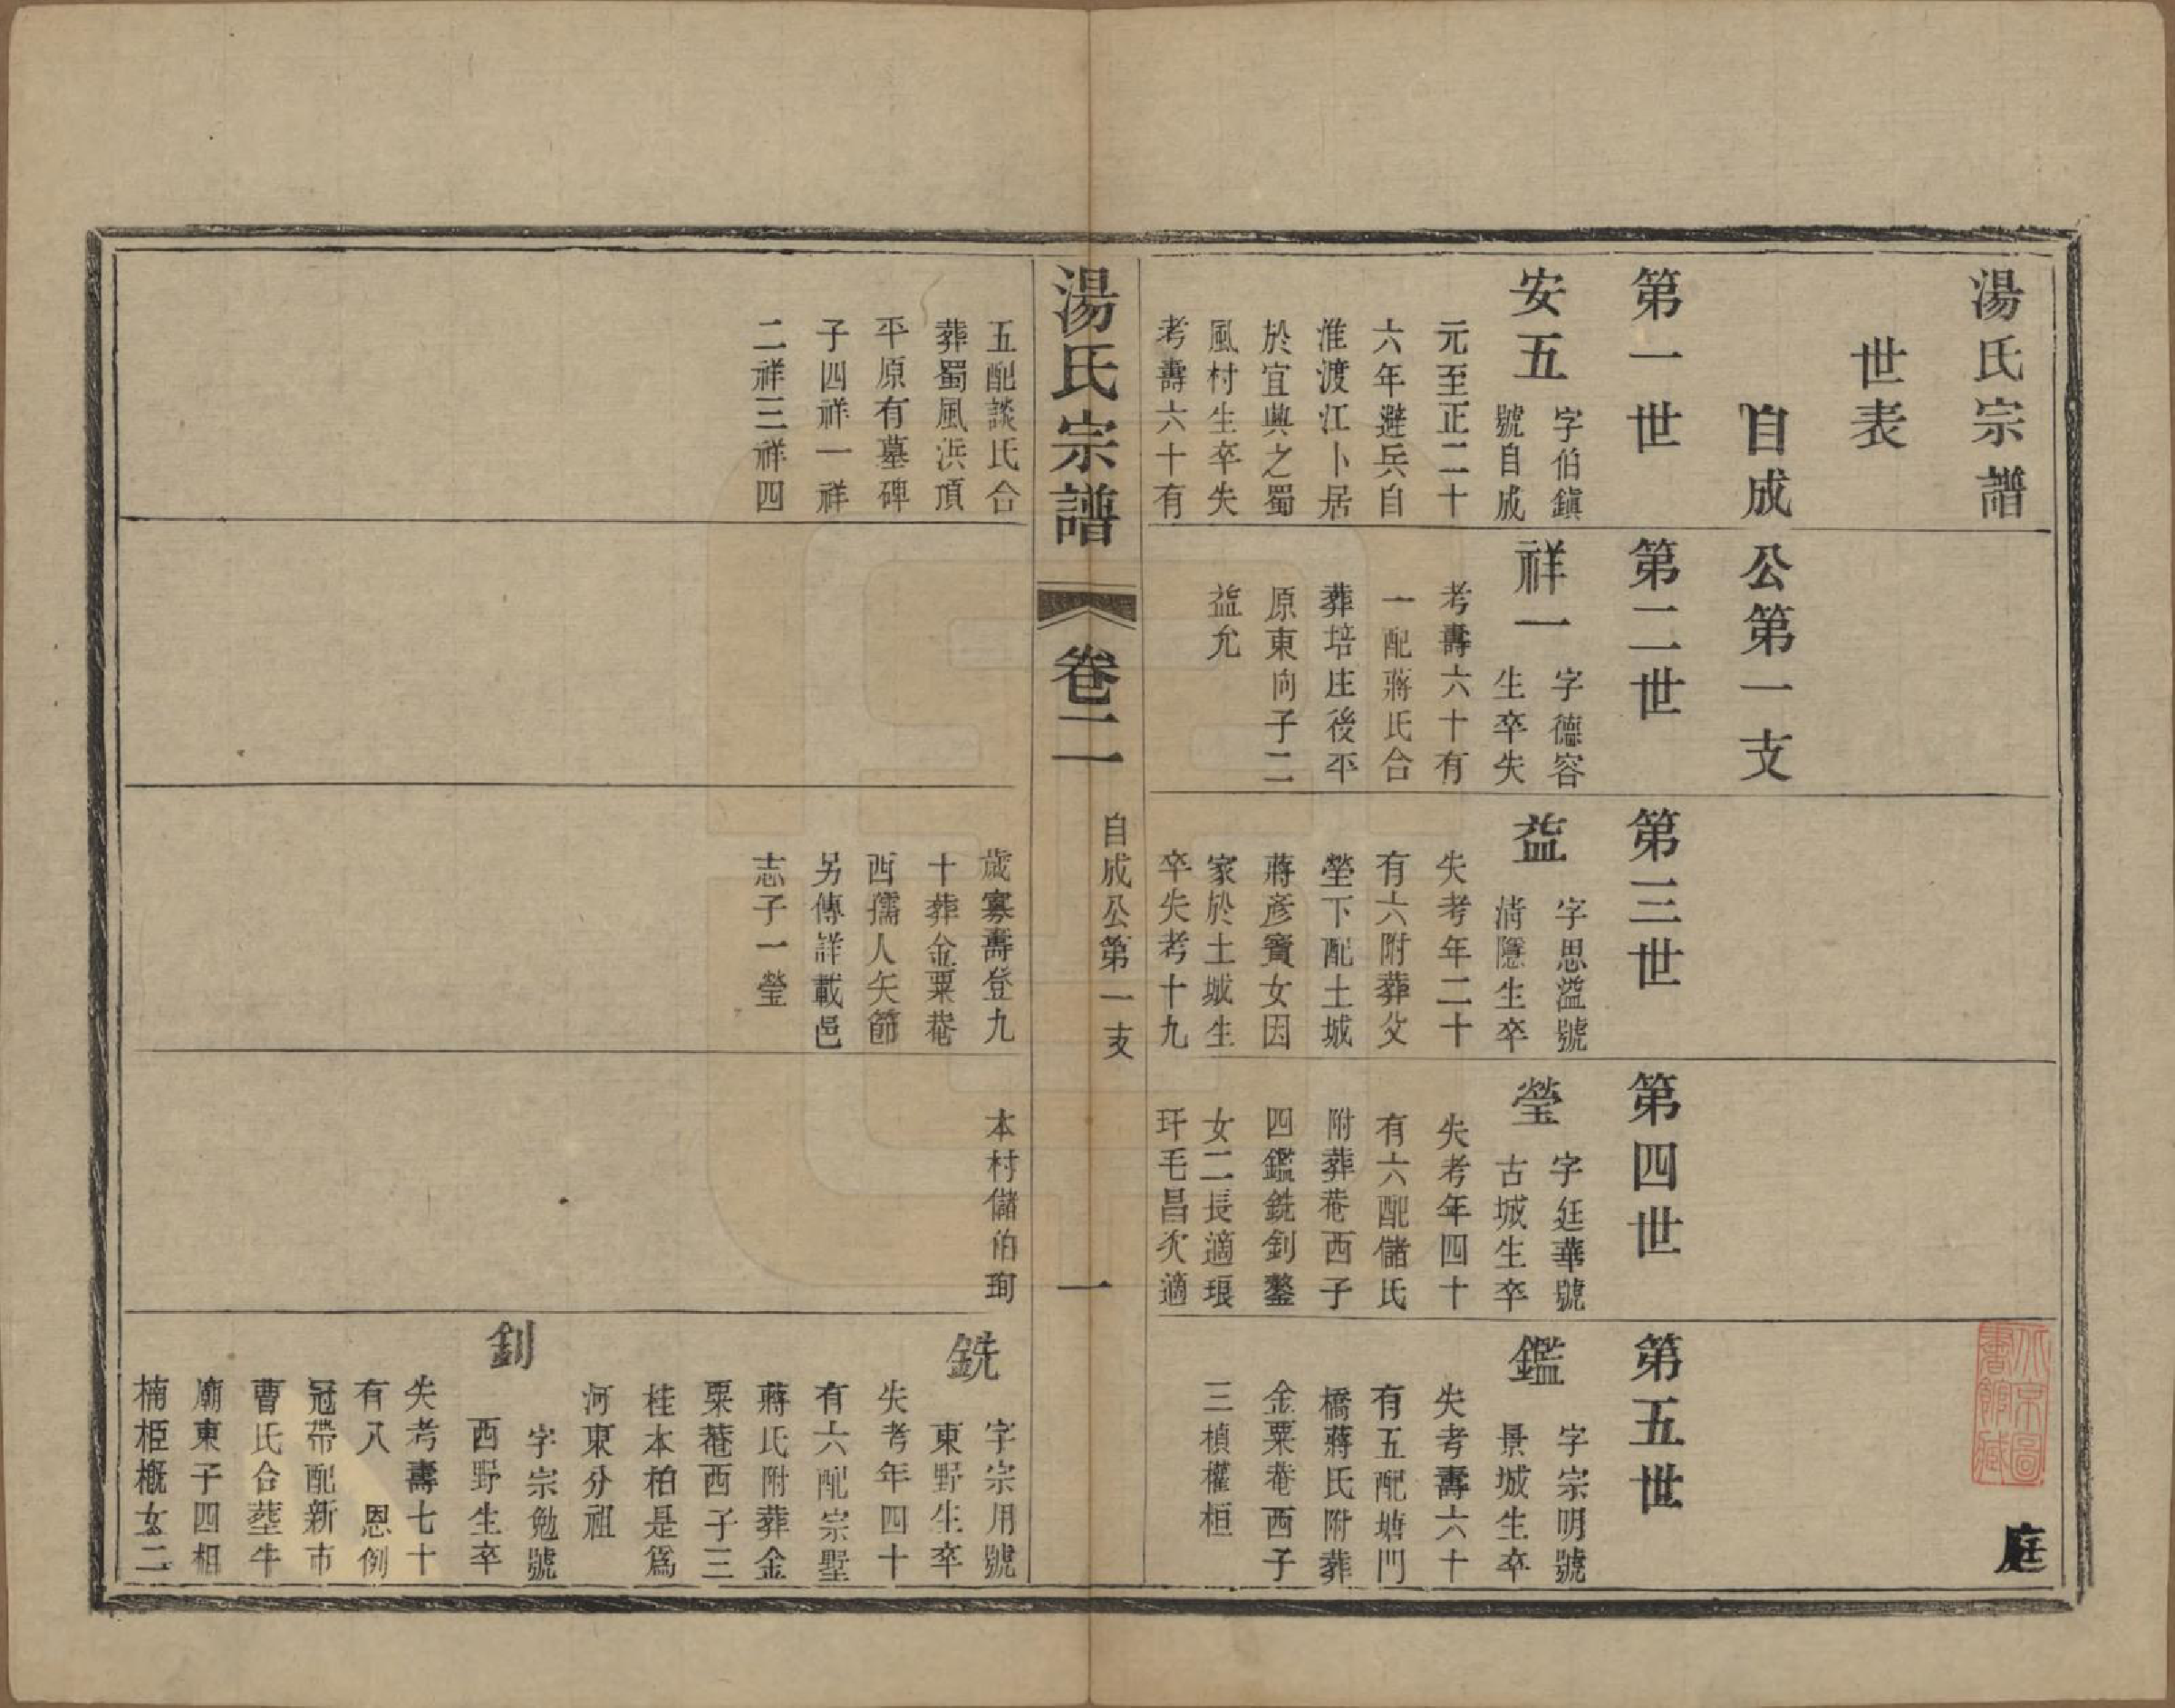 湯氏宗譜
世表
自成公第一支
第一世
安五
字伯鎮
號自成
元至正二十
六年避兵自
淮渡江卜居
於宜興之蜀
風村生卒失
考壽六十有
五配談氏合
葬蜀風洪頂
平原有墓碑
子四祥一祥
二祥三祥四
第二世
祥一
字德容
生卒失
考壽六十有
一配蔣氏合
葬培庄後平
原東向子二
益允
第三世
益
字思溢號
清隱生卒
失考年二十
有六附葬父
塋下配土城
蔣彥寶女因
家於土城生
卒失考十九
歲寡壽登九
十葬金粟菴
西孺人矢節
另傳詳載邑
志子一瑩
第四世
瑩
字廷華號
古城生卒
失考年四十
有六配儲氏
附葬菴西子
四鑑銑釗鏊
女二長適琅
玕毛昌次適
本村儲伯珣
第五世
鑑
字宗明號
景城生卒
失考壽六十
有五配塘門
橋蔣氏附葬
金粟菴西子
三楨權桓
銑
字宗用號
東野生卒
失考年四十
有六配宗墅
蔣氏附葬金
粟菴西子三
桂本柏是爲
河東分祖
釗
字宗勉號
西野生卒
失考壽七十
有八 恩例
冠帶配新市
曹氏合塟牛
廟東子四相
楠柜概女二
庭
湯氏宗譜
卷二
自成公第一支
一
北京圖
書館藏